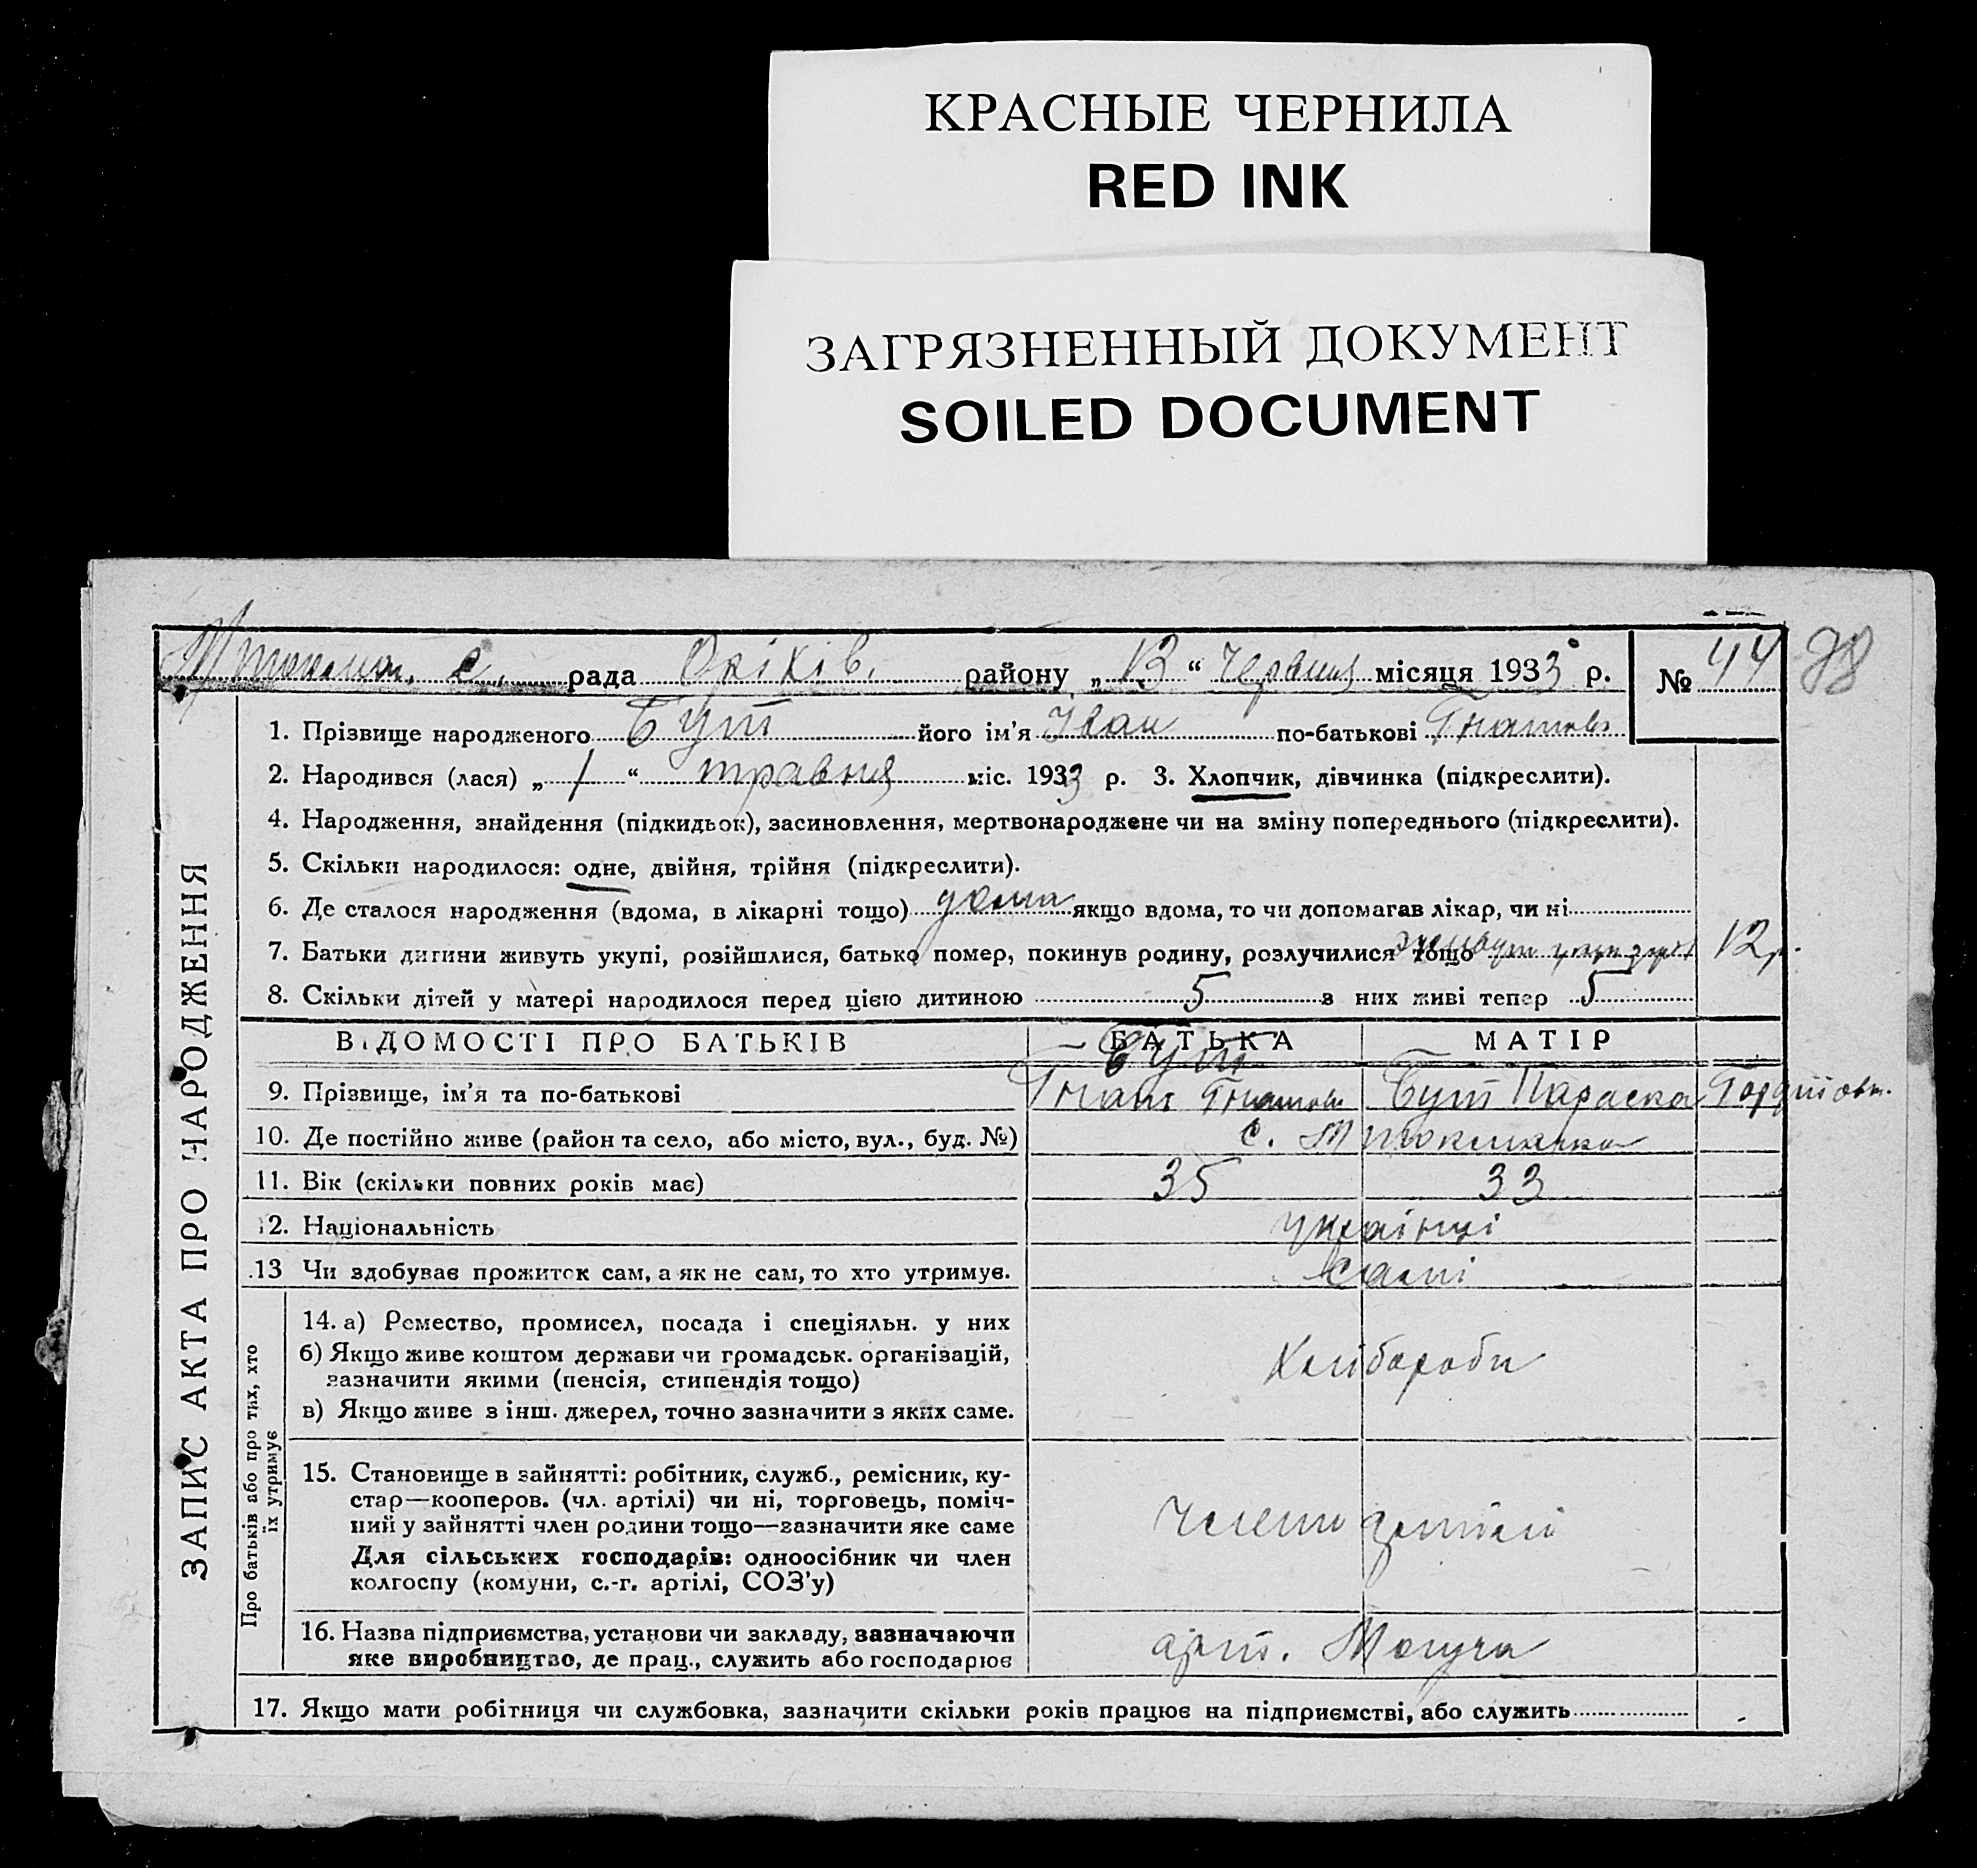 КРАСНЫЕ ЧЕРНИЛА
RED INK
ЗАГРЯЗНЕННЫЙ ДОКУМЕНТ
SOILED DOCUMENT
с. рада Оріхів. району „ 13 “ Червня місяця 1933 р. № 44
1. Прізвище народженого Бут його ім’я Іван по-батькові Гнатов
2. Народився (лася) „ 1 “ травня міс. 1933 р. 3. Хлопчик, дівчинка (підкреслити).
4. Народження, знайдення (підкидьок), засиновлення, мертвонароджене чи на зміну попереднього (підкреслити).
5. Скільки народилося: одне, двійня, трійня (підкреслити).
6. Де сталося народження (вдома, в лікарні тощо) дома якщо вдома, то чи допомагав лікар, чи ні
7. Батьки дитини живуть укупі, розійшлися, батько помер, покинув родину, розлучилися тощо живут 12 р.
8. Скільки дітей у матері народилося перед цією дитиною 5 з них живі тепер 5
ВІДОМОСТІ ПРО БАТЬКІВ БАТЬКА МАТІР
Бут
9. Прізвище, ім’я та по-батькові Гнат Гнатов Бут Параска Гордіїовн.
10. Де постійно живе (район та село, або місто, вул., буд. №) с. М Токмачка
11. Вік (скільки повних років має) 35 33
12. Національність українці
13 Чи здобуває прожиток сам, а як не сам, то хто утримує. Самі
14. а) Ремество, промисел, посада і спеціяльн. у них
б) Якщо живе коштом держави чи громадськ. організацій,
зазначити якими (пенсія, стипендія тощо) Хлібороби
в) Якщо живе з інш. джерел, точно зазначити з яких саме.
15. Становище в зайнятті: робітник, служб., ремісник, ку-
стар—кооперов. (чл. артілі) чи ні, торговець, поміч-
ний у зайнятті член родини тощо—зазначити яке саме Члени артілі
Для сільських господарів: одноосібник чи член
колгоспу (комуни, с.-г. артілі, СОЗ’у)
16. Назва підприємства, установи чи закладу, зазначаючи
яке виробництво, де прац., служить або господарює арт. Могуча
17. Якщо мати робітниця чи службовка, зазначити скільки років працює на підприємстві, або служить
ЗАПИС АКТА ПРО НАРОДЖЕННЯ
Про батьків або про тих, хто
їх утримує